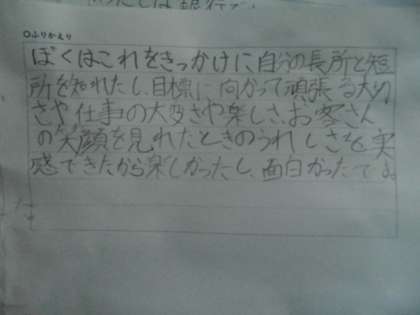 わたしは銀行
○ふりかえり
ぼくはこれをきっかけに自分の長所と短
所を知れたし、目標に向かって頑張る大切
さや仕事の大変さや楽しさ、お客さん
の笑顔を見れたときのうれしさも実
感できたから楽しかったし、面白かったです。